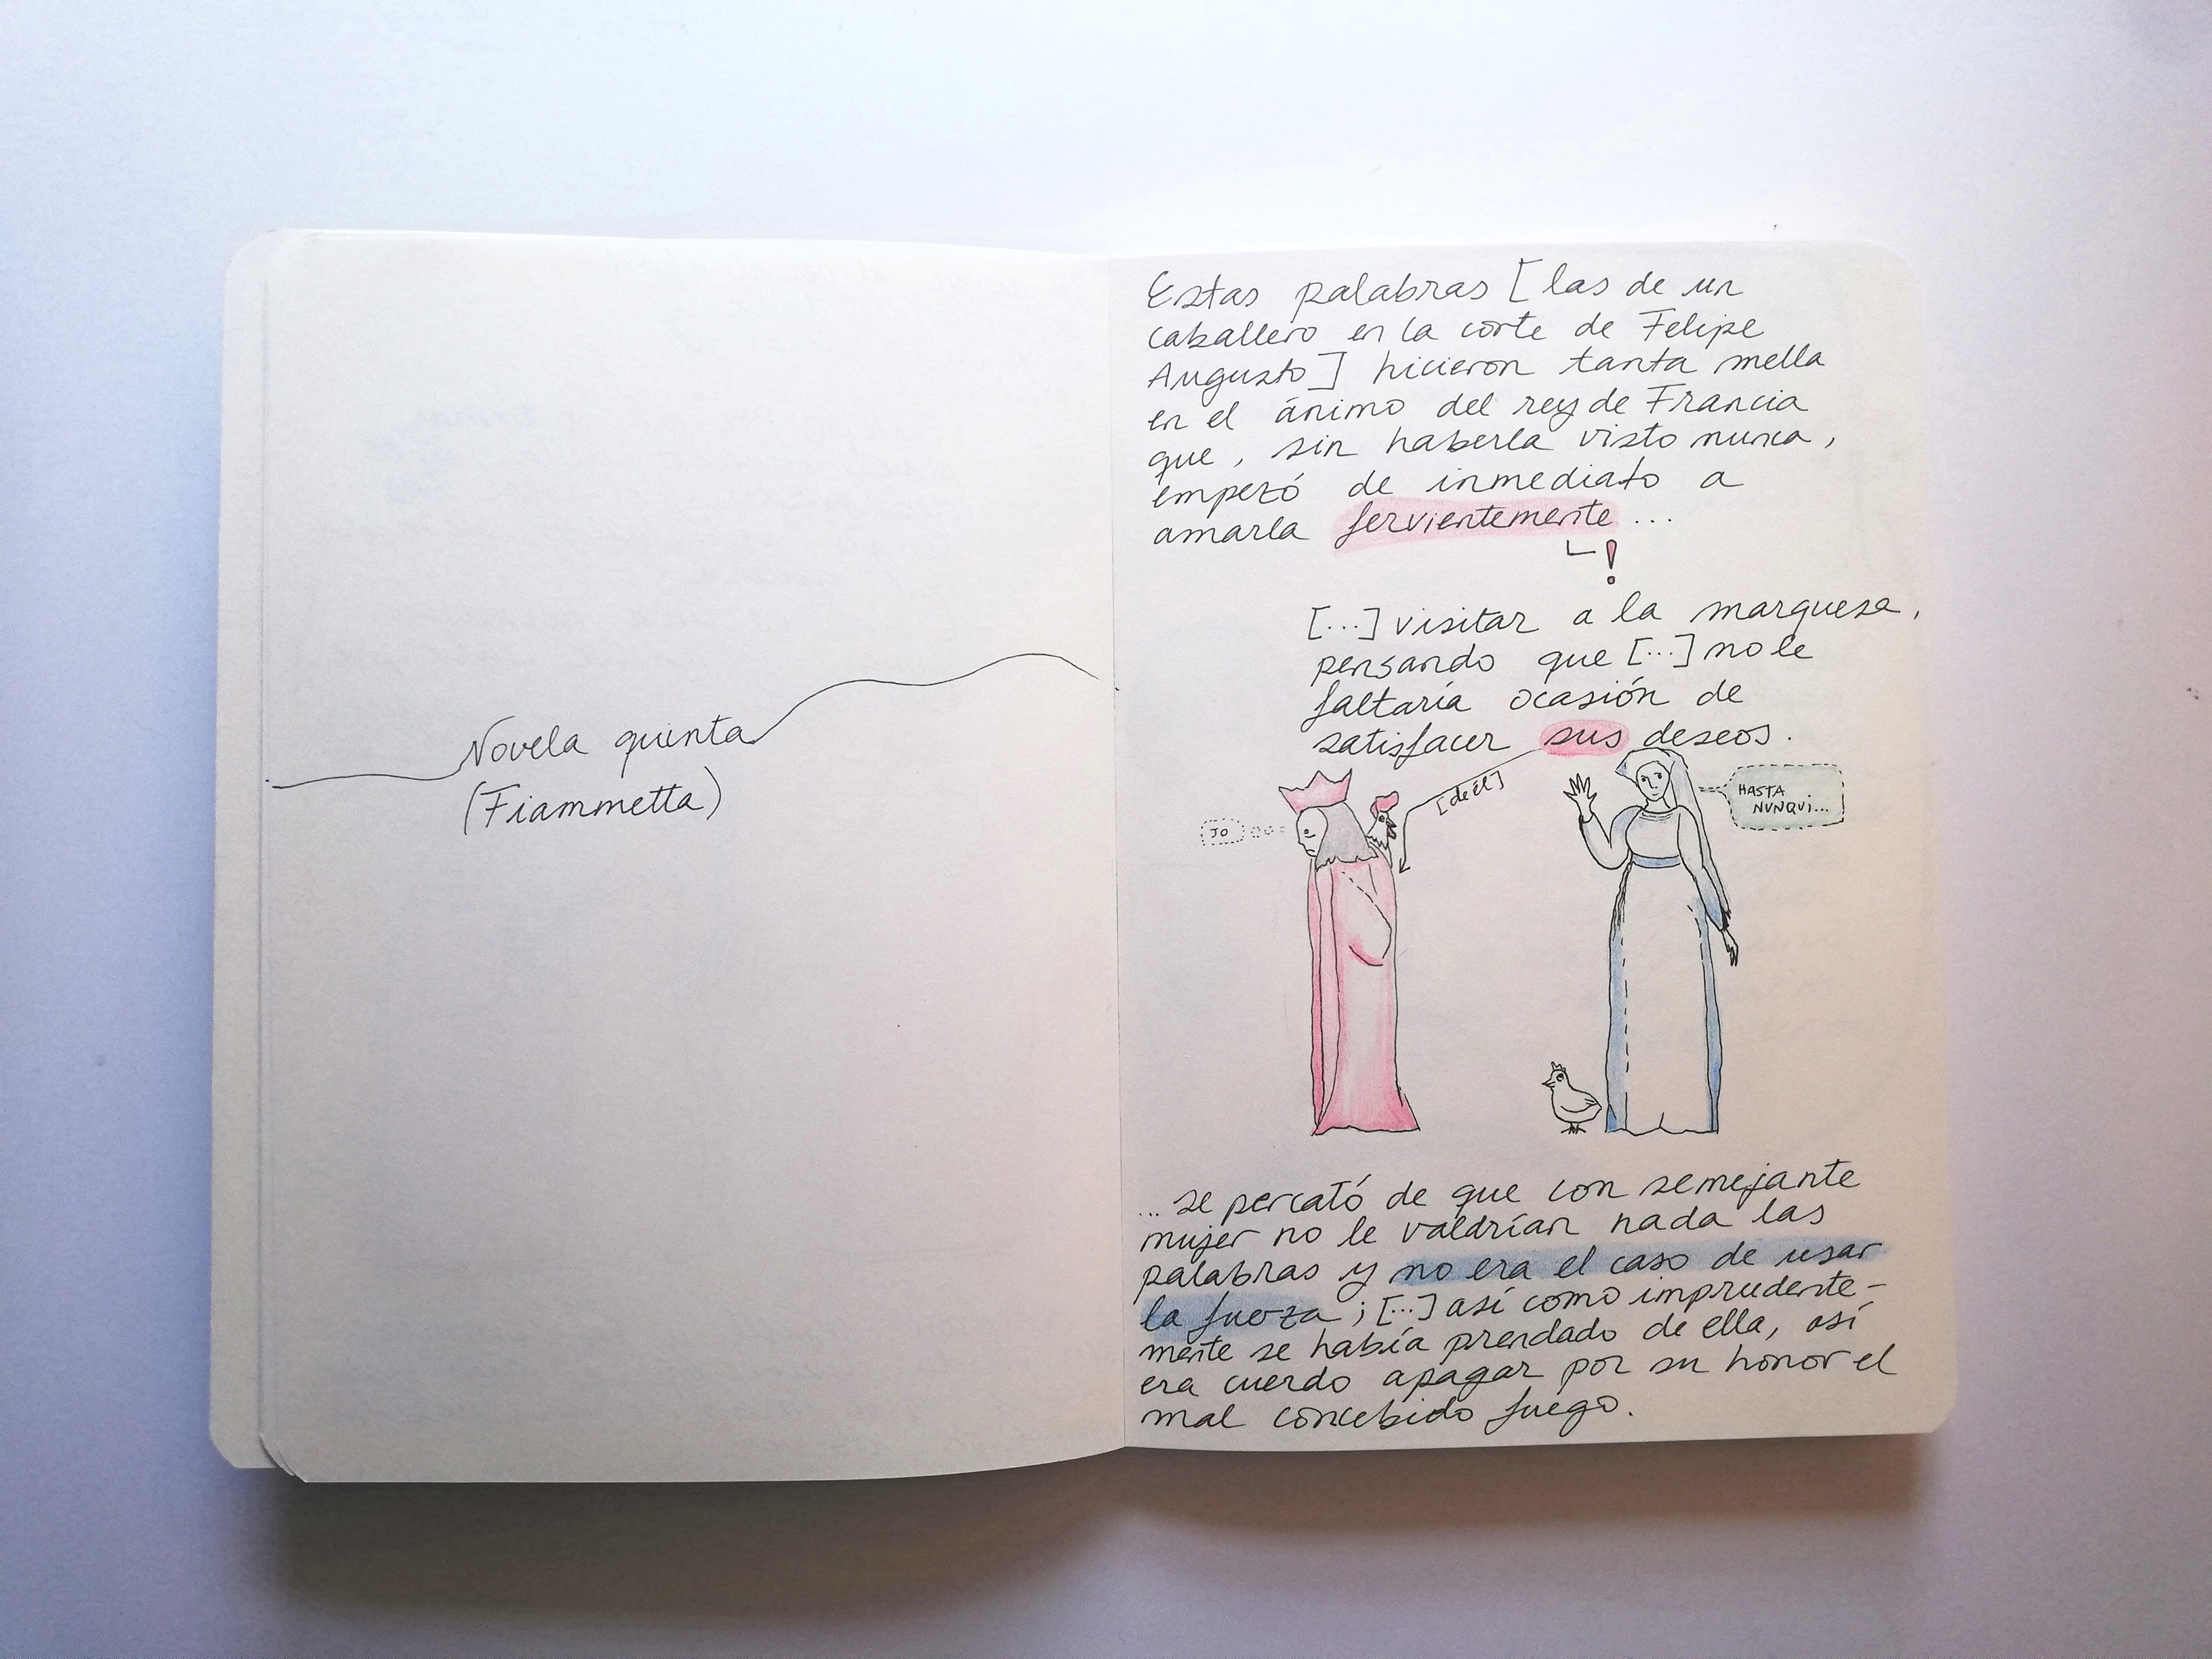 Novela quinta
(Fiammetta)
Estas palabras [las de un
caballero en la corte de Felipe
Augusto] hicieron tanta mella
en el ánimo del rey de Francia
que, sin haberla visto nunca,
empezó de inmediato a
amarla fervientemente...
!
[...] visitar a la marquesa,
pensando que [...] no le
faltaría ocasión de
satisfacer sus deseos.
[de él]
JO
HASTA
NUNQUI...
... se percató de que con semejante
mujer no le valdrían nada las
palabras y no era el caso de usar
la fuerza; [...] así como imprudente-
mente se había prendado de ella, así
era cuerdo apagar por su honor el
mal concebido fuego.